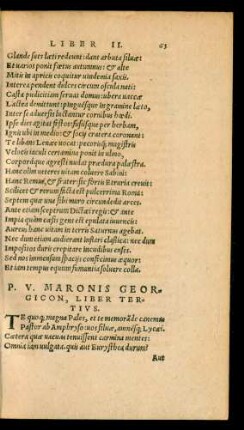 LIBER II. 63
Glande sues læti redeunt: dant arbuta siluæ:
Et uarios ponit fœtus autumnus: & alte
Mitis in apricis coquitur uindemia saxis.
Interea pendent dulces circum oscula nati:
Casta pudicitiam seruat domus: ubera uaccæ
Lactea demittunt: pinguesque in gramine læto,
Inter se aduersis luctantur cornibus hœdi.
Ipse dies agitat festos: fususque per herbam,
Ignis ubi in medio: & socij cratera coronant:
Te libans Lenæe uocat: pecorisque magistris
Velocis iaculi certamina ponit in ulmo,
Corporaque agresti nudat prædura palæstra.
Hanc olim ueteres uitam coluere Sabini:
Hanc Remus, & frater: sic fortis Etruria creuit:
Scilicet & rerum facta est pulcerrima Roma:
Septem quæ una sibi muro circundedit arces.
Ante etiam sceptrum Dictæi regis: & ante
Impia quàm cæsis gens est epulata iuuencis:
Aureus hanc uitam in terris Saturnus agebat.
Nec dum etiam audierant inflari classica: nec dum
Impositos duris crepitare incudibus enses.
Sed nos immensum spacijs confecimus æquor:
Et iam tempus equum fumantia soluere colla.
P. V. MARONIS GEOR-
GICON, LIBER TER-
TIVS.
TE quoque magna Pales, et te memorande canemus
Pastor ab Amphryso: uos siluæ, amnesque Lycæi.
Cætera quæ uacuas tenuissent carmina mentes:
Omnia iam uulgata. quis aut Eurysthea durum?
Aut